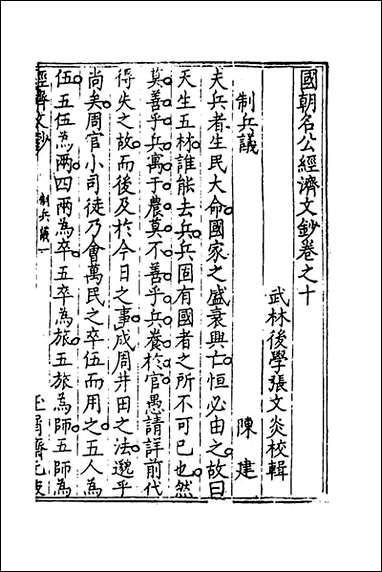 國朝名公經濟文鈔卷之十
武林後學張文炎校輯
制兵議
陳建
夫兵者生民大命國家之盛衰興亡恒必由之故曰
天生五材誰能去兵兵固有國者之所不可已也然
莫善乎兵寓于農莫不善乎兵養於官愚請詳前代
得失之故而後及於今日之事成周井田之法邈乎
尚矣周官小司徒乃會萬民之卒伍而用之五人為
伍五伍為兩四兩為卒五卒為旅五旅為師五師為
經濟文鈔
制兵議
一